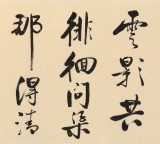 雲影共
徘徊問渠
那得清